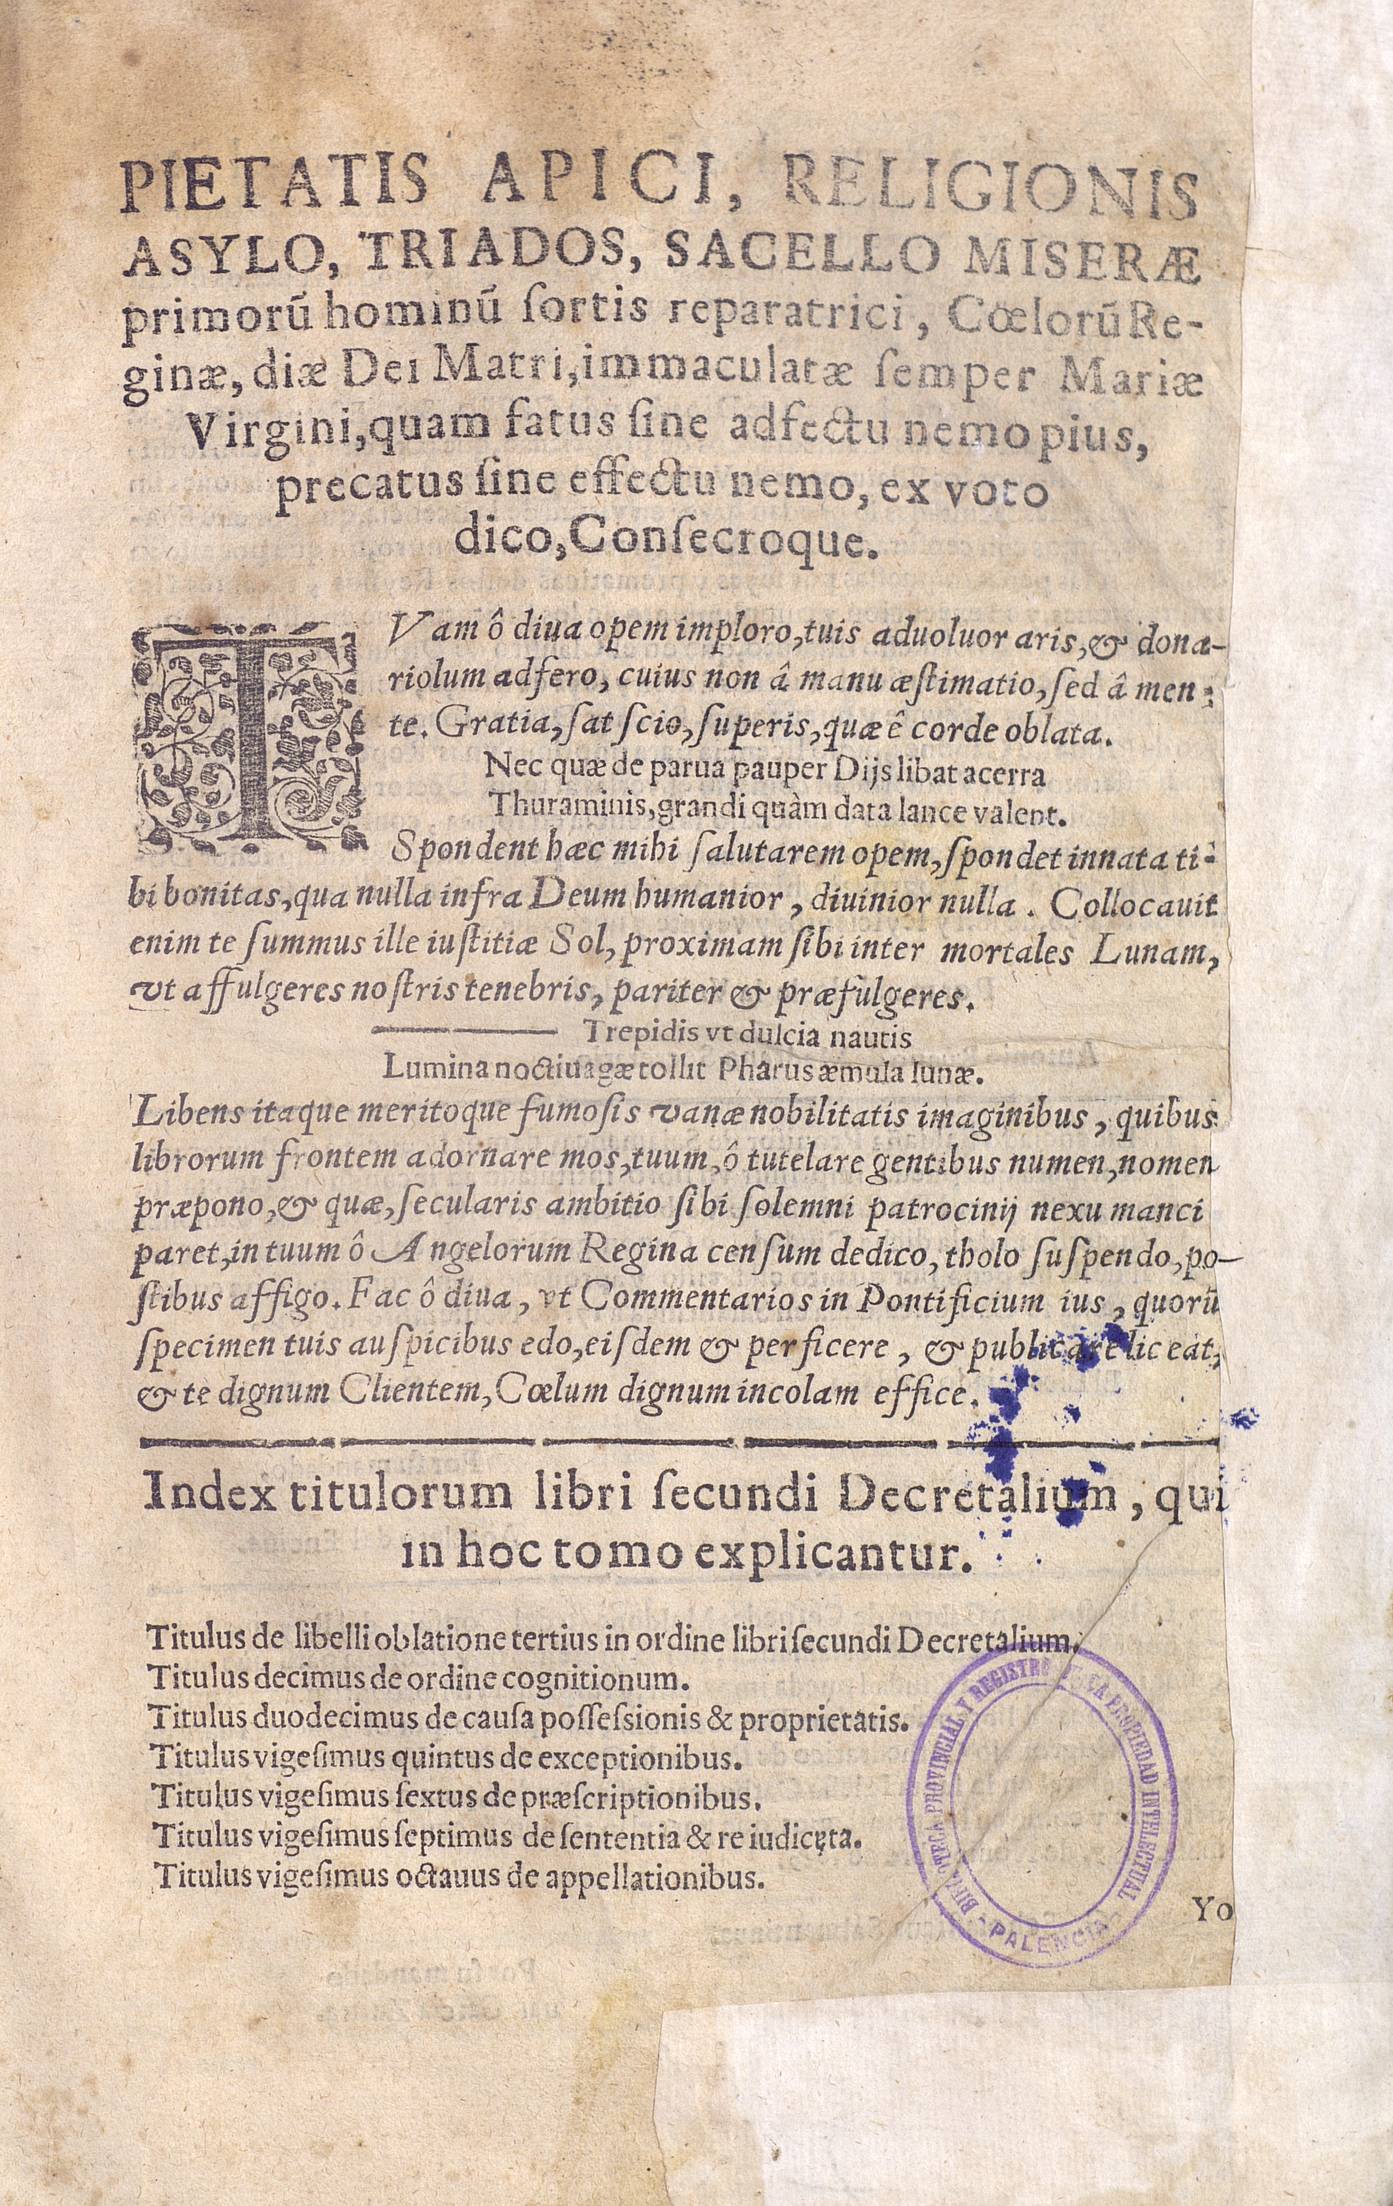 PIETATIS APICI, RELIGIONIS
ASYLO, TRIADOS, SACELLO MISERÆ
primorũ hominũ ſortis reparatrici, Cœlorũ Re-
ginæ, diæ Dei Matri, immaculatæ ſemper Mariæ
Virgini, quam fatus ſine adfectu nemo pius,
precatus ſine effectu nemo, ex voto
dico, Conſecroque.
TVam ô diua opem imploro, tuis aduoluor aris, & dona-
riolum adfero, cuius non â manu æſtimatio, ſed â men-
te. Gratia, ſat ſcio, ſuperis, quæ ê corde oblata.
Nec quæ de parua pauper Dijs libat acerra
Thura minis, grandi quàm data lance valent.
Spondent hæc mihi ſalutarem opem, ſpondet innata ti-
bi bonitas, qua nulla infra Deum humanior, diuinior nulla. Collocauit
enim te ſummus ille iuſtitiæ Sol, proximam ſibi inter mortales Lunam,
vt affulgeres noſtris tenebris, pariter & præfulgeres.
—— Trepidis vt dulcia nautis
Lumina noctiuagæ tollit Pharus æmula lunæ.
Libens itaque meritoque fumoſis vanæ nobilitatis imaginibus, quibus
librorum frontem adornare mos, tuum, ô tutelare gentibus numen, nomen
præpono, & quæ, ſecularis ambitio ſibi ſolemni patrocinij nexu manci
paret, in tuum ô Angelorum Regina cenſum dedico, tholo ſuſpendo, po-
ſtibus affigo. Fac ô diua, vt Commentarios in Pontificium ius, quorũ
ſpecimen tuis auſpicibus edo, eiſdem & perficere, & publicare liceat,
& te dignum Clientem, Cœlum dignum incolam effice.
Index titulorum libri ſecundi Decretalium, qui
in hoc tomo explicantur.
Titulus de libelli oblatione tertius in ordine libri ſecundi Decretalium.
Titulus decimus de ordine cognitionum.
Titulus duodecimus de cauſa poſſeſsionis & proprietatis.
Titulus vigeſimus quintus de exceptionibus.
Titulus vigeſimus ſextus de præſcriptionibus.
Titulus vigeſimus ſeptimus de ſententia & re iudicata.
Titulus vigeſimus octauus de appellationibus.
BIBLIOTECA PROVINCIAL Y REGISTRO DE LA PROPIEDAD INTELECTUAL
- PALENCIA -
Yo